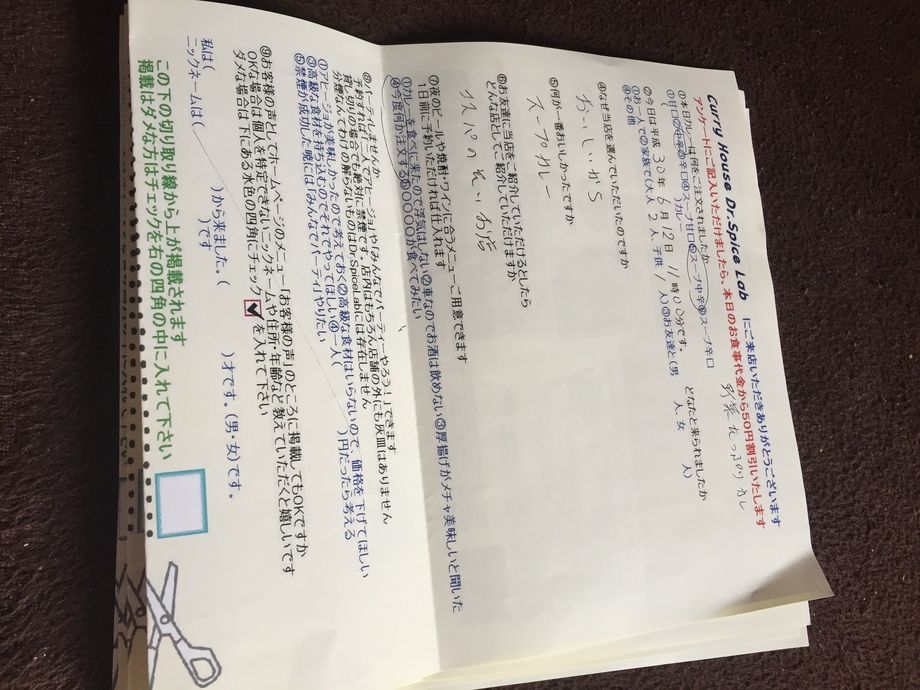 Curry House Dr.Spice Lab にご来店いただきありがとうございます
アンケートにご記入いただけましたら、本日のお食事代金から50円割引いたします
①本日カレーは何をご注文されましたか
①甘口②中辛③辛口④スープ甘口⑤スープ中辛⑥スープ辛口
カレー
②今日は平成30年6月12日11時00分です。
どなたと来られましたか
①お一人で②家族で(大人 2人、子供 1人)③お友達と(男 人、女 人)
④その他
④なぜ当店を選んでいただいたのですか
おいしいから
⑤何が一番おいしかったですか
スープカレー
⑥お友達に当店をご紹介していただけるかとしたら
どんな店としてご紹介していただけますか
⑦夜のビールや焼酎・ワインに合うメニューご用意できます
1日前に予約いただければ仕入れます
①カレーを食べに来たので浮気はしない②車なのでお酒は飲めない③厚揚げがメチャ美味しいと聞いた
④今度何か注文する⑤〇〇〇〇〇が食べてみたい
⑧パーティしませんか
予約すれば「二人でアヒージョ」や「みんなでパーティーやろう!」できます
貸し切りの場合でも絶対に禁煙です。店内はもちろん店舗の外にも灰皿はありません
分煙なんてわけの解らないものはDr.SpiceLabには存在しません
①アヒージョが美味しかったので考えておく②高級な食材はいらないので、価格を下げてほしい
③高級な食材を持ち込むのでそれでやってほしい④一人( )円だったら考える
⑤禁煙が成功した暁には「みんなでパーティ」やりたい
⑨お客様の声としてホームページのメニュー「お客様の声」のところに掲載してもOKですか
OKな場合は個人を特定できないニックネームや住所・年齢など教えていただくと嬉しいです
ダメな場合は下にある水色の四角にチェック☑を入れて下さい
私は( )から来ました。( )才です。(男・女)です。
ニックネームは( )です
この下の切り取り線から上が掲載されます
掲載はダメな方はチェックを右の四角の中に入れて下さい